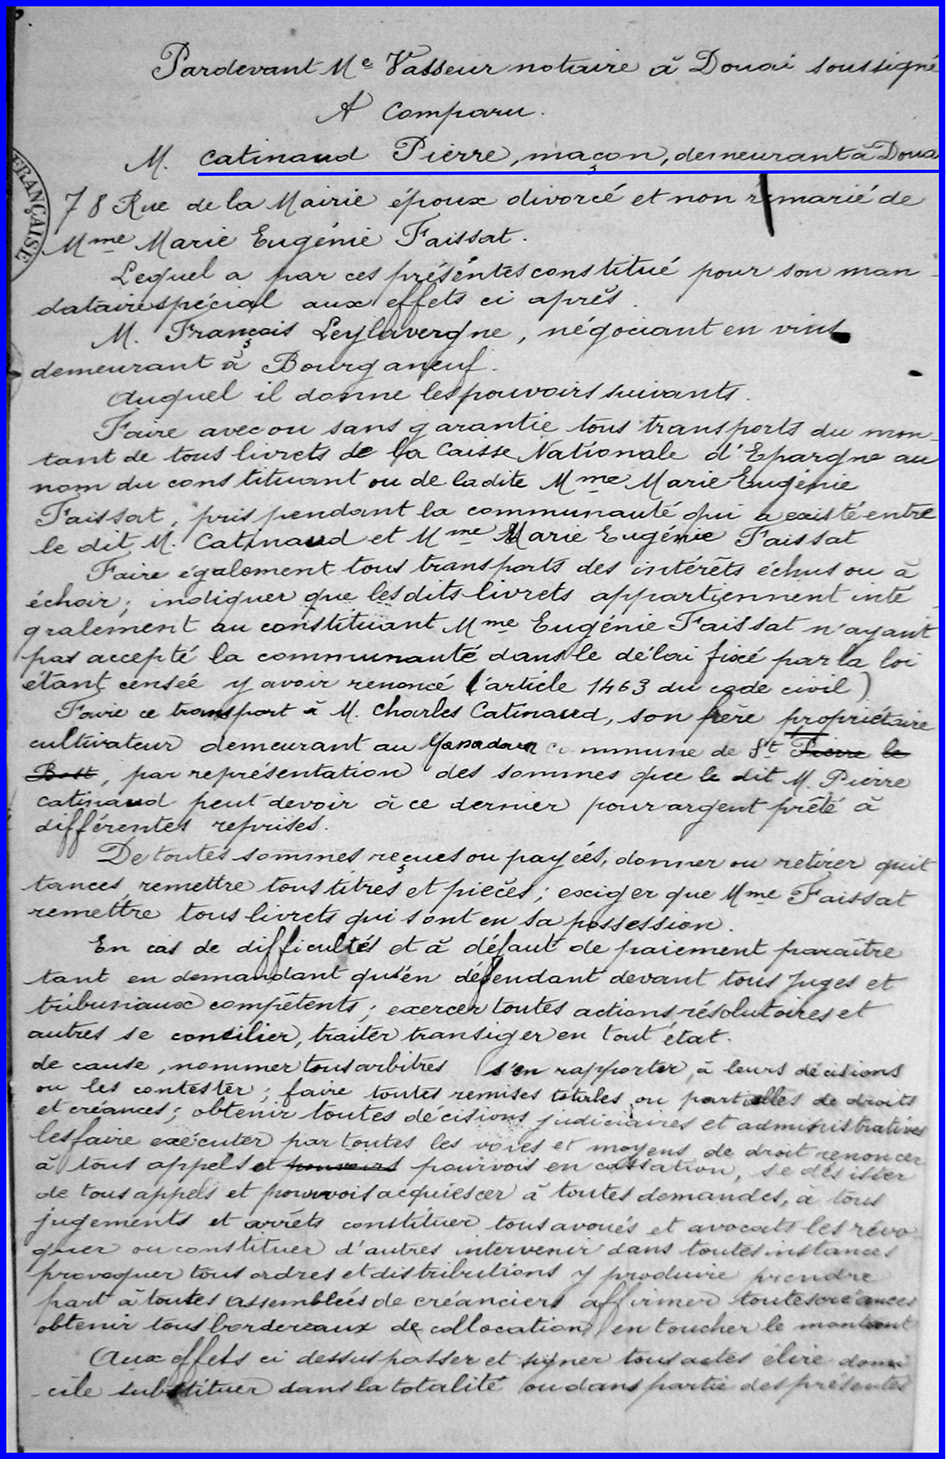 Pardevant Me Vasseur notaire à Douai soussigné
A Comparu.
M. Catinaud Pierre, maçon, demeurant à Doua
78 Rue de la Mairie époux divorcé et non remarié de
Mme Marie Eugénie Faissat.
Lequel a par ces présentes constitué pour son man-
dataire spécial aux effets ci après.
M. François Leylavergne, négociant en vins
demeurant à Bourganeuf.
Auquel il donne les pouvoirs suivants.
Faire avec ou sans garantie tous transports du mon-
tant de tous livrets de la Caisse Nationale d'Epargne au
nom du constituant ou de ladite Mme Marie Eugénie
Faissat, pris pendant la communauté qui a existé entre
le dit M. Catinaud et Mme Marie Eugénie Faissat
Faire également tous transports des intérêts échus ou à
échoir; indiquer que lesdits livrets appartiennent inté-
gralement au constituant Mme Eugénie Faissat n'ayant
pas accepté la communauté dans le délai fixé par la loi
étant censée y avoir renoncé (article 1463 du code civil)
Faire ce transport à M. Charles Catinaud, son frère propriétaire
cultivateur demeurant au commune de St Pierre le
Bost, par représentation des sommes que le dit M. Pierre
Catinaud peut devoir à ce dernier pour argent prêté à
différentes reprises.
De toutes sommes reçues ou payées, donner ou retirer quit
tances, remettre tous titres et pièces; exiger que Mme Faissat
remettre tous livrets qui sont en sa possession.
En cas de difficultés et à défaut de paiement paraître
tant en demandant qu'en défendant devant tous Juges et
tribunaux compétents; exercer toutes actions résolutoires et
autres se concilier, traiter transiger en tout état.
de cause, nommer tous arbitres s'en rapporter, à leurs décisions
ou les contester; faire toutes remises totales ou partielles de droits
et créances; obtenir toutes décisions judiciaires et administratives
les faire exécuter par toutes les voies et moyens de droit renoncer
à tous appels et pouvoirs pourvois en cassation, se désister
de tous appels et pourvois acquiescer à toutes demandes, à tous
jugements et arrêts constituer tous avoués et avocats les révo-
quer ou constituer d'autres intervenir dans toutes instances
provoquer tous ordres et distributions y produire prendre
part à toutes assemblées de créanciers affirmer toutes créances
obtenir tous bordereaux de collocation, en toucher le montant
Aux effets ci dessus passer et signer tous actes élire domi
-cile substituer dans la totalité ou dans partie des présentes
FRANÇAISE